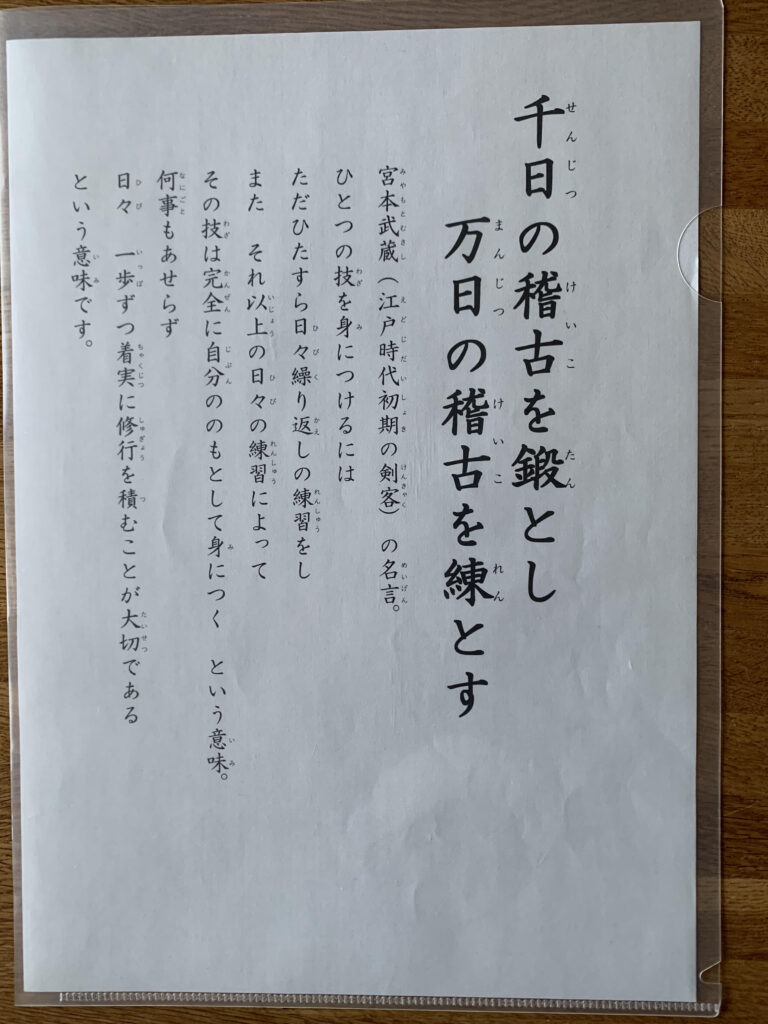 千日の稽古を鍛とし
万日の稽古を練とす
宮本武蔵(江戸時代初期の剣客)の名言。
ひとつの技を身につけるには
ただひたすら日々繰り返しの練習をし
また それ以上の日々の練習によって
その技は完全に自分ののもとして身につく という意味。
何事もあせらず
日々 一歩ずつ着実に修行を積むことが大切である
という意味です。